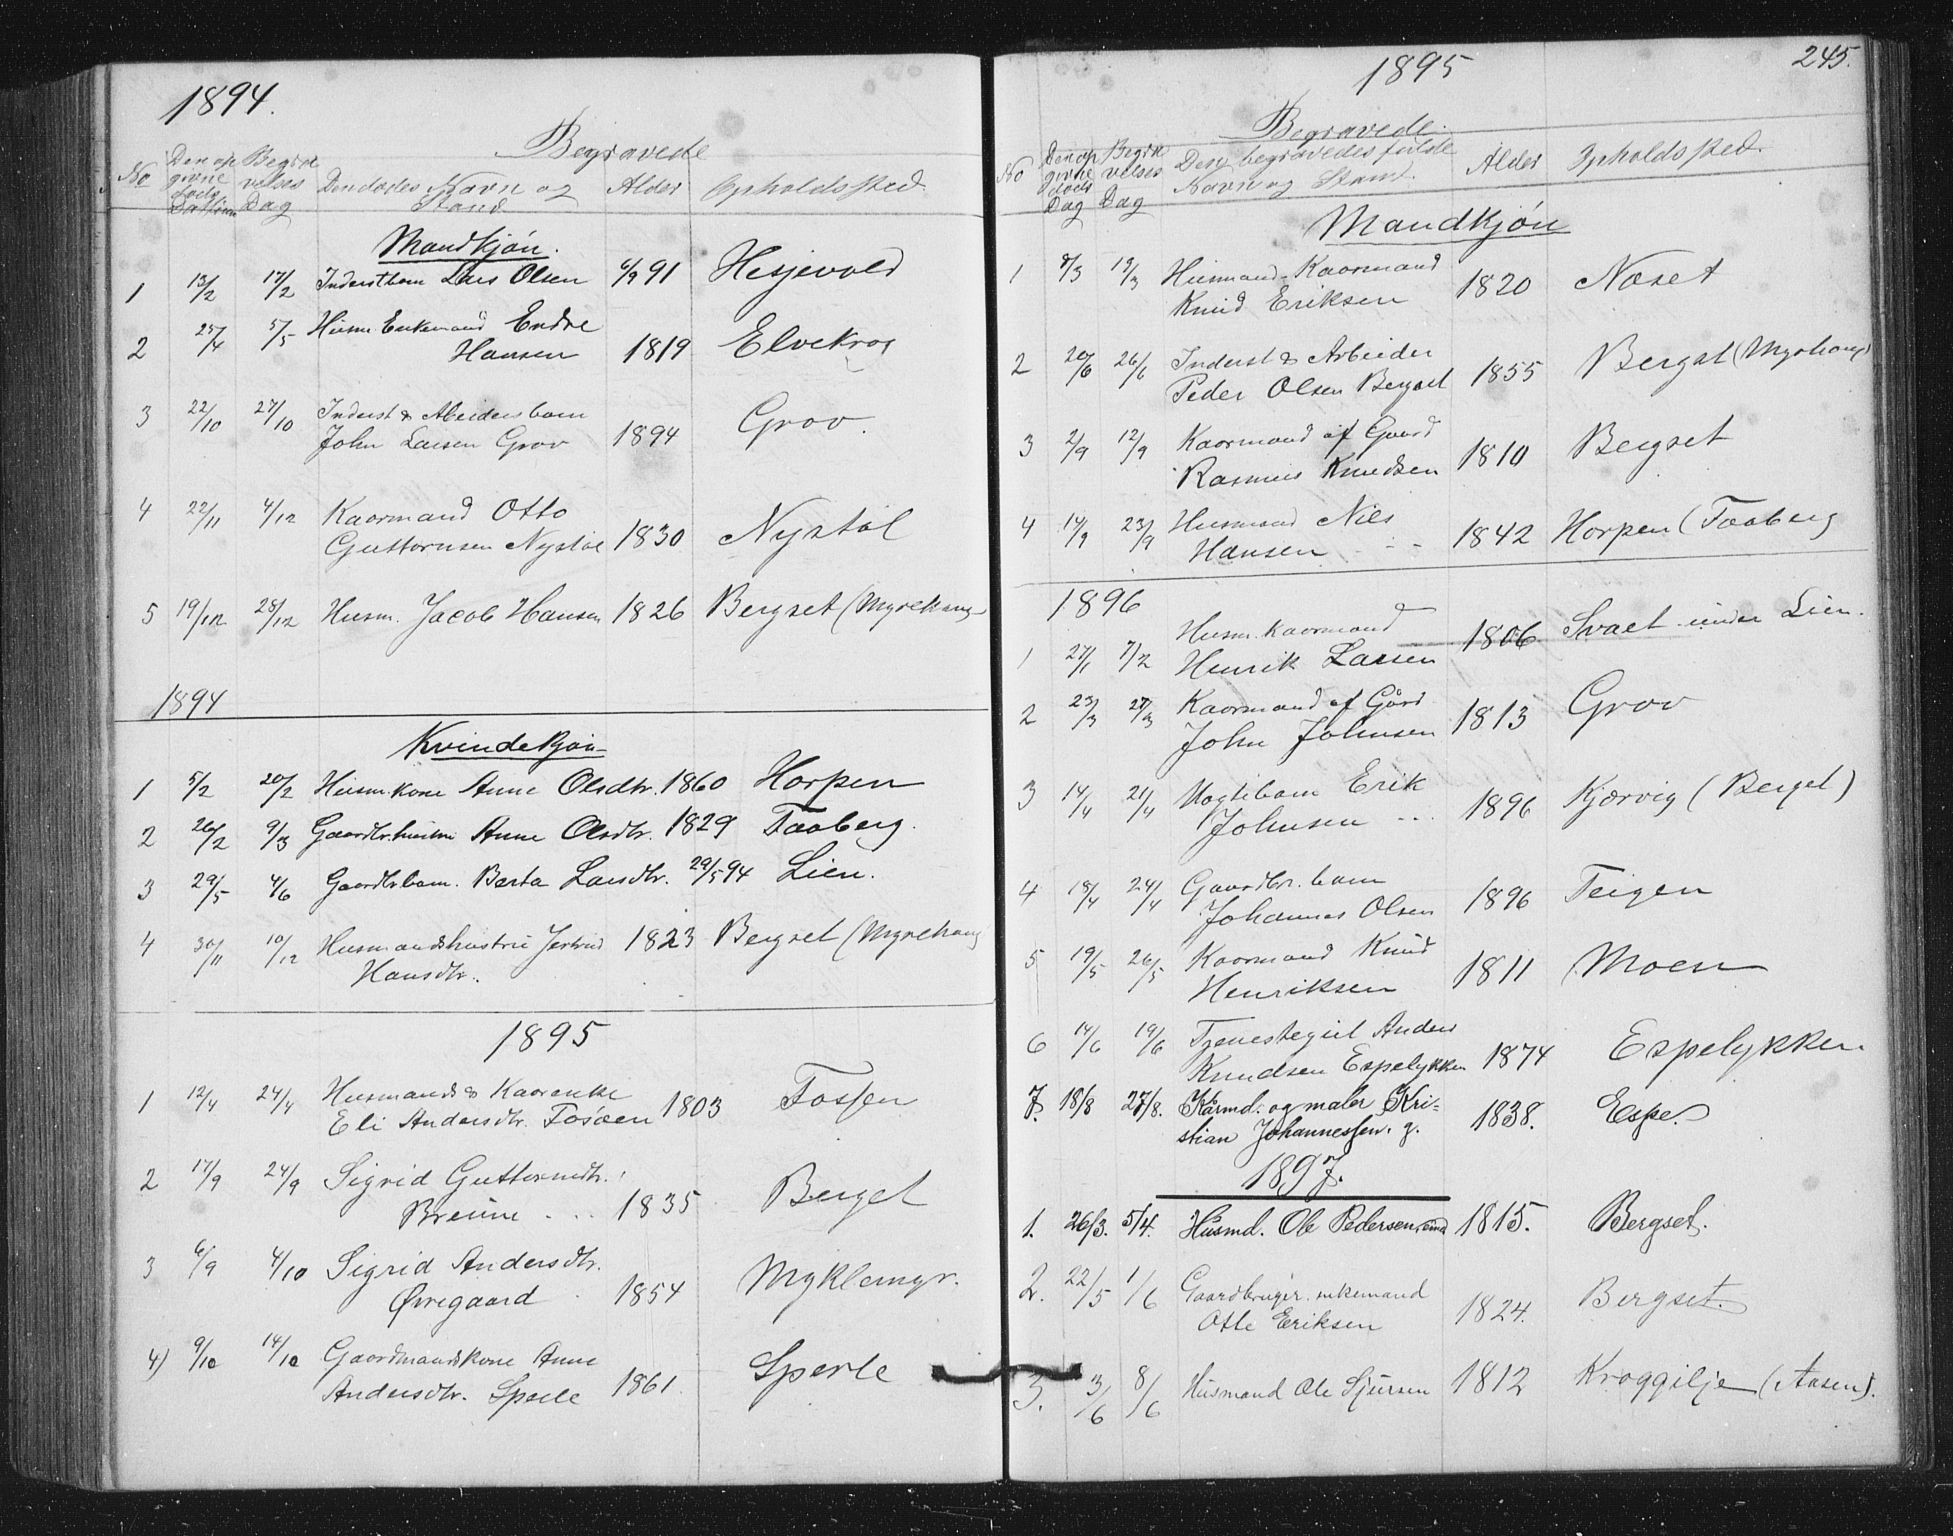 1894.
Begravede
No Den opgivne Døds Datum Begravelses Dag Den dødes Navn og Stand Alder Opholdssted.
Mandkjøn.
1 13/2 17/2 Inderstbarn Lars Olsen 6/9 91 Hesjevold
2 25/4 5/5 Husm. Enkemand Endre
Hansen 1819 Elvekrog
3 22/10 27/10 Inderst & Arbeiders barn
John Larsen Grov 1894 Grov.
4 22/11 4/12 Kaarmand Otto
Guttormsen Nystøl 1830 Nystøl
5 19/12 28/12 Husm. Jacob Hansen 1826 Bergset (Myrehaug
1894
Kvindekjøn
1 5/2 20/2 Husm.kone Anne Olsdtr. 1860 Horpen
2 26/2 9/3 Gaardbr. Anne Olsdtr. 1829 Taaberg.
3 29/5 4/6 Gaardbr.barn. Berta Larsdtr. 29/5 94 Lien.
4 30/11 10/12 Husmandshustru Jertrud 1823 Bergset (Myrehaug
Hansdtr.
1895
1 12/4 24/4 Husmands & Kaarenke
Eli Andersdtr. Fosøen 1803 Fossen
2 17/9 24/9 Sigrid Guttormdtr.
Breume 1835 Berget
3 6/9 4/10 Sigrid Andersdtr.
Øvregaard 1854 Myklemyr.
4) 9/10 14/10 Gaardmandskone Anne
Andersdtr. Sperle 1861. Sperle
1895
245.
Begravede.
No Den opgivne døds Dag Begravelses Dag Den begravedes fulde Navn og Stand. Alder Opholdssted.
Mandkjøn
1 8/3 19/3 Husmand-Kaarmand
Knud Eriksen 1820 Næset
2 20/6 26/6 Inderst & Arbeider
Peder Olsen Bergset 1855 Bergset (Myrehaug)
3 2/9 12/9 Kaarmand af Gaard
Rasmus Knudsen 1810 Bergset
4 14/9 23/9 Husmand Nils
Hansen 1842 Horpen (Taaberg
1896
1 27/1 7/2 Husm. Kaarmand
Henrik Larsen 1806 Svaet under Lien.
2 23/3 27/3 Kaarmand af Gård
John Johnsen 1813 Grov
3 14/4 21/4 Erik
Johnsen 1896 Kjærvig (Berget)
4 18/4 24/4 Gaardbr. barn
Johannes Olsen 1896 Teigen
5 19/5 26/5 Kaarmand Knud
Henriksen 1811 Moen
6 14/6 19/6 Tjenestegut Anders
Knudsen Espelykken 1874 Espelykken
7. 18/8 27/8. Kårmd. og maler Kri-
stian Johannessen. g. 1838. Espe.
1897.
1. 26/3. 5/4. Husmd. Ole Pedersen, enkm. 1815. Bergset.
2. 22/5 1/6 Gaardbruger. enkemand
Otte Eriksen 1824. Bergset.
3. 3/6 8/6 Husmand Ole Sjursen 1812 Kroggilje (Aasen).